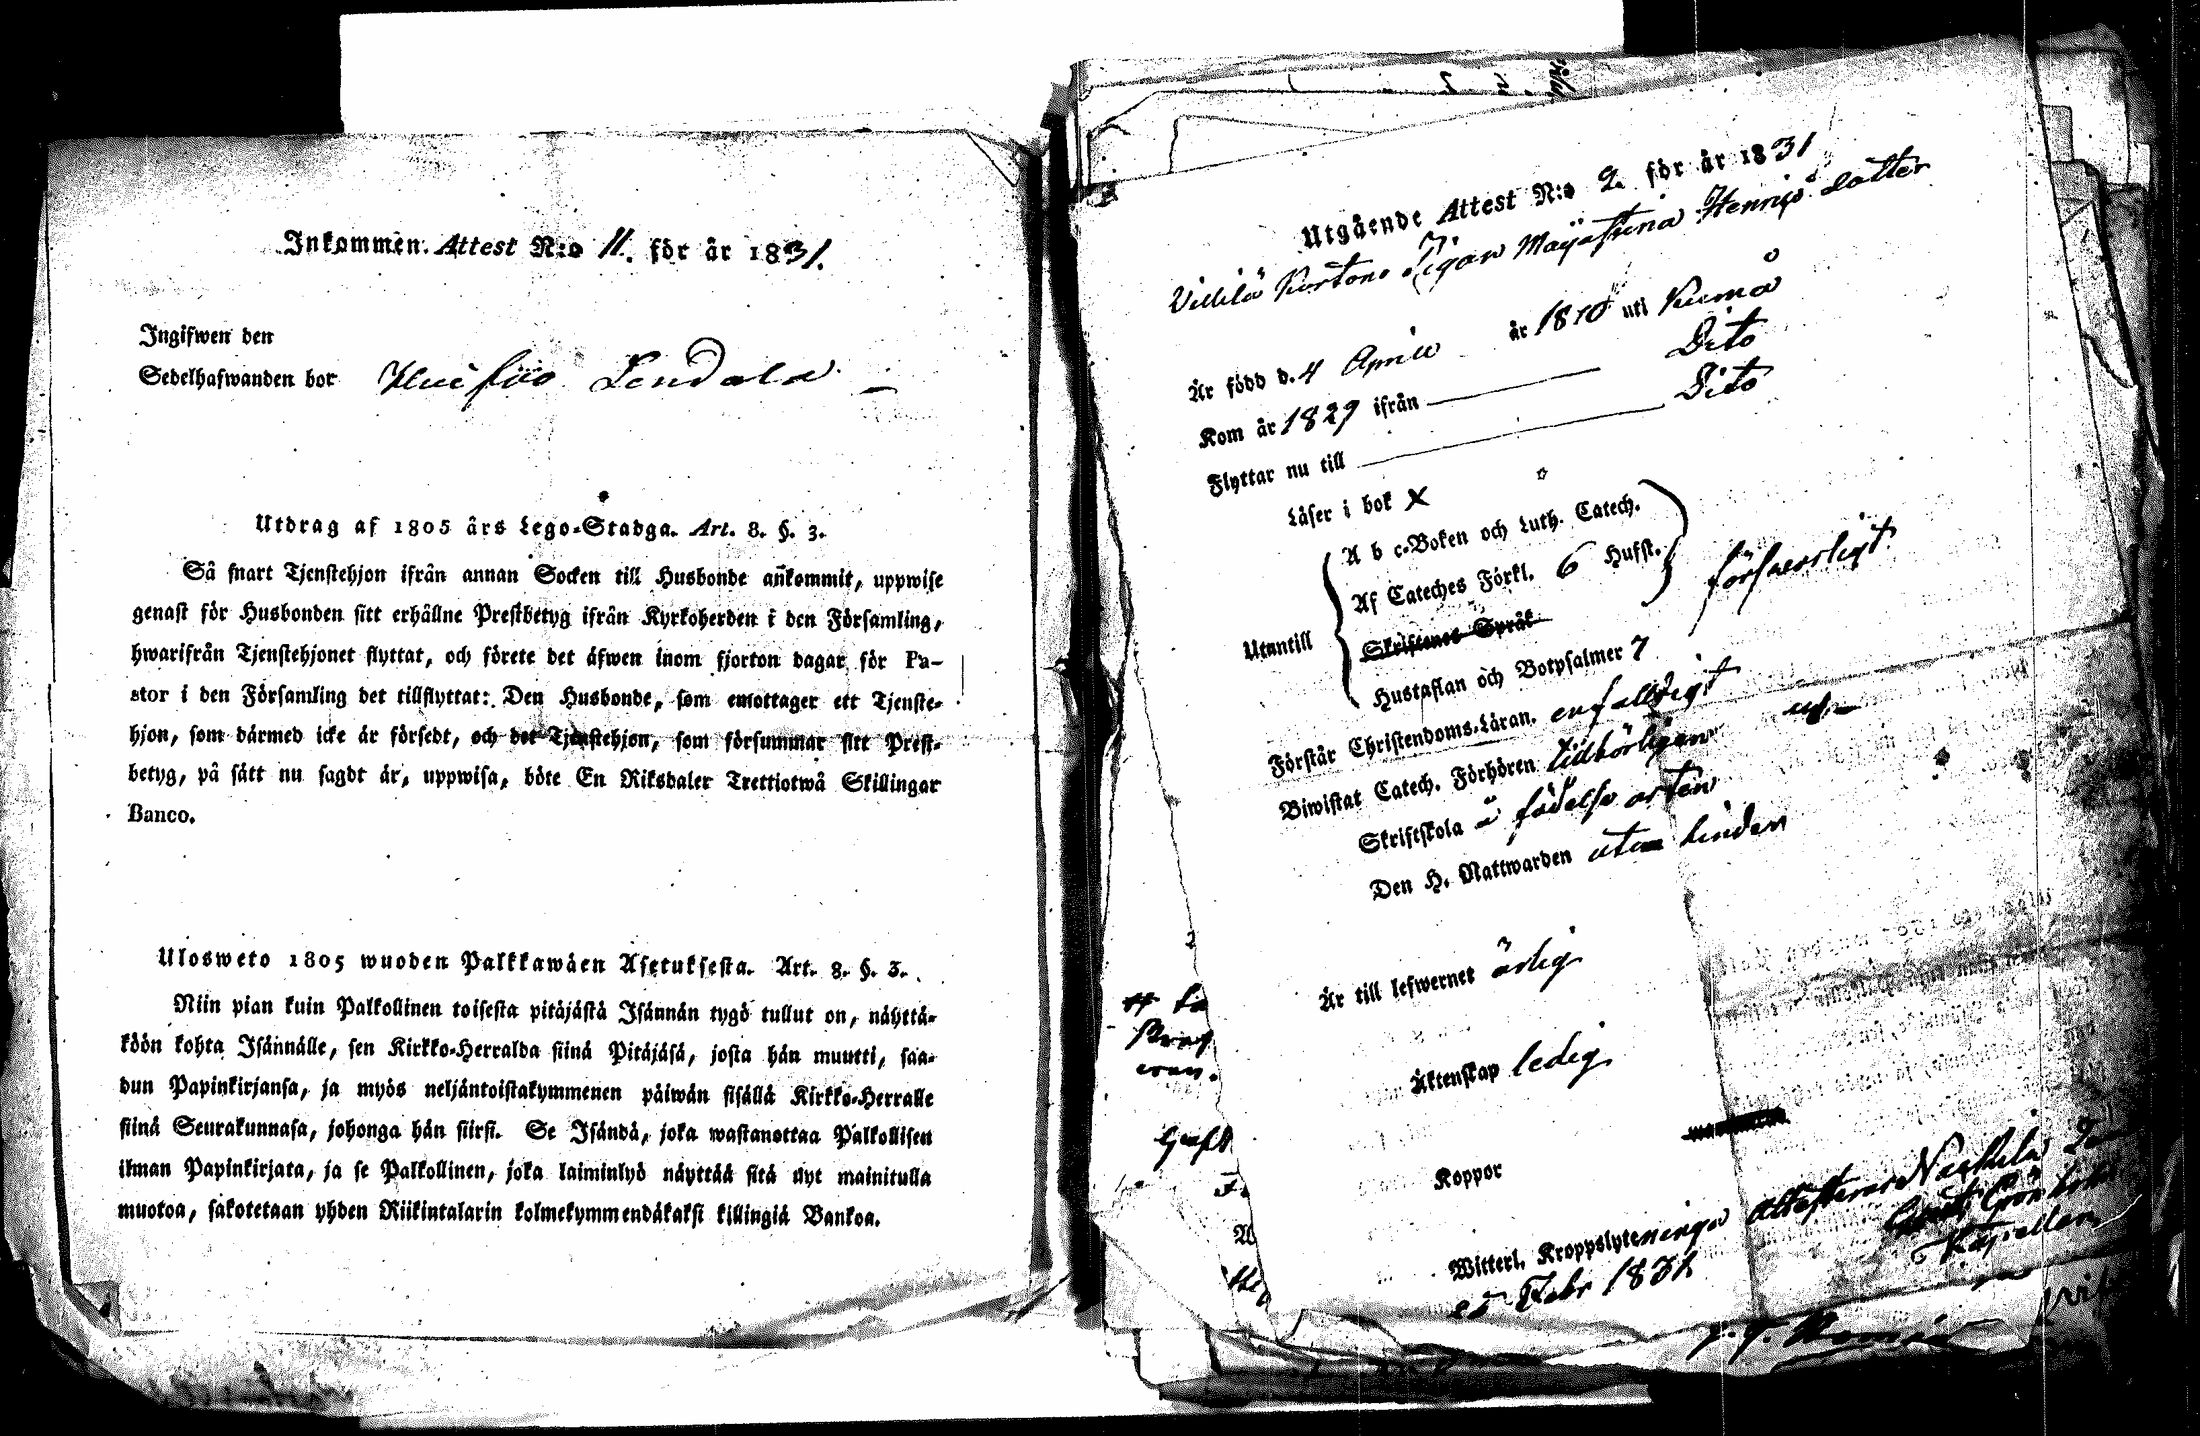 Inkommen Attest N:o 11. för år 1831.
Ingifwen den
Sedelhafwanden bor
Utdrag af 1805 års Lego-Stadga. Art. 8. §. 3.
Så snart Tjenstehjon ifrån annan Socken till Husbonde ankommit, uppwise
genast för Husbonden sitt erhållne Prestbetyg ifrån Kyrkoherden i den Församling,
hwarifrån Tjenstehjonet flyttat, och förete det äfwen inom fjorton dagar för Pa-
stor i den Församling det tillflyttat: Den Husbonde, som emottager ett Tjenste-
hjon, som därmed icke är försedt, och det Tjenstehjon, som försummar sitt Prest-
betyg, på sätt nu sagdt är, uppwisa, böte En Riksdaler Trettiotwå Skillingar
Banco.
Ulosweto 1805 wuoden Palkkawäen Asetuksesta. Art. 8. §. 3.
Niin pian kuin Palkollinen toisesta pitäjästä Isännän tygö tullut on, näyttä-
köön kohta Isännälle, sen Kirkko-Herralda siinä Pitäjäsä, josta hän muutti, saa-
dun Papinkirjansa, ja myös neljäntoistakymmenen päiwän sisällä Kirkko-Herralle
siinä Seurakunnasa, johonga hän siirsi. Se Isändä, joka wastanottaa Palkollisen
ilman Papinkirjata, ja se Palkollinen, joka laiminlyö näyttää sitä nyt mainitulla
muotoa, sakotetaan yhden Riikintalarin kolmekymmendäkaksi killingiä Bankoa.
Utgående Attest N:o 2 för år 1831
Pigan Majastina Henrics dotter
Är född d. 4 April år 1810 uti Kumå
Kom år 1829 ifrån Dito
Flyttar nu till Dito
Läser i bok x
A b c-Boken och Luth. Catech.
Af Cateches Förkl. 6 Hufst. försvarligt
Utantill
Skriftenes Språk
Hustaflan och Botpsalmer 7
Förstår Christendoms-Läran. enfalldigt
Biwistat Catech. Förhören tidhörligen
Skriftskola å födelse orten
Den H. Nattwarden utan hinder
Är till lefwernet ärlig
Äktenskap ledig
Koppor
Witterl. Kroppslyte attesterar
25 Febr 1831
Kapellan